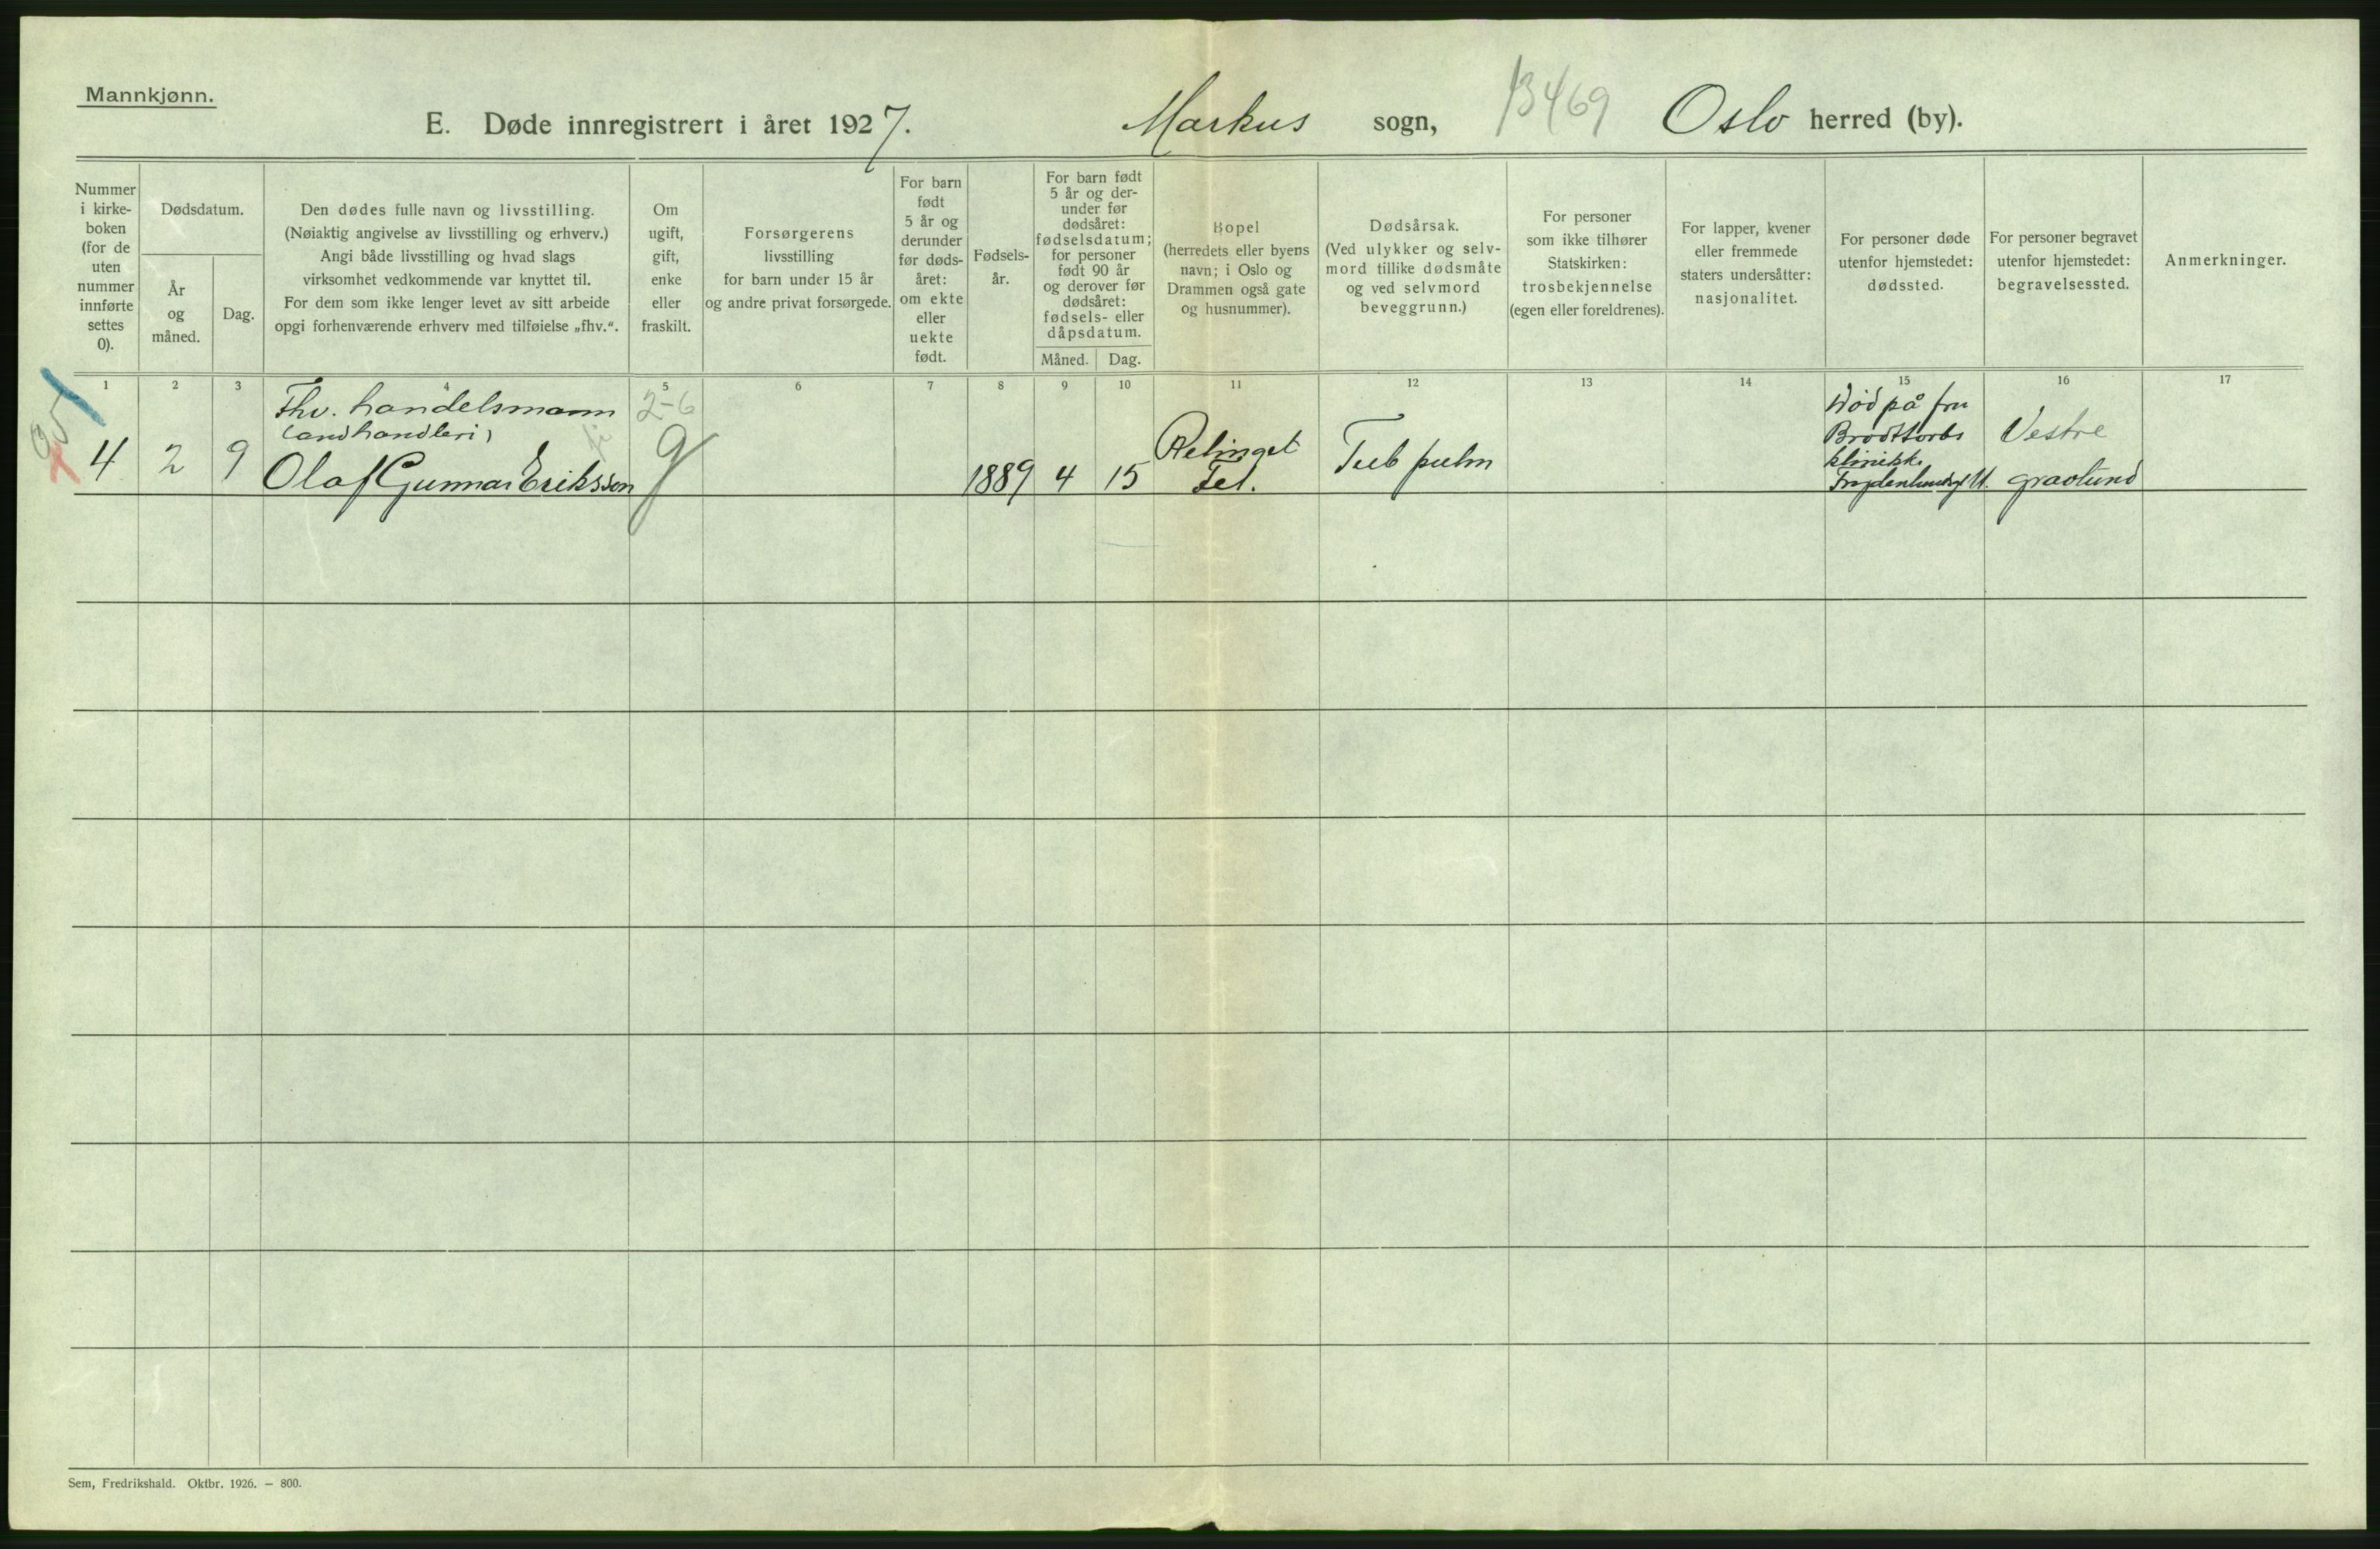 Mannkjønn.
E. Døde innregistrert i året 1927. Markus sogn, 13469 Oslo herred (by).
Nummer i kirke- boken (for de uten nummer innførte settes 0).
Dødsdatum.
År og måned.
Dag.
Den dødes fulle navn og livsstilling.
(Nøiaktig angivelse av livsstilling og erhverv.)
Angi både livsstilling og hvad slags
virksomhet vedkommende var knyttet til.
For dem som ikke lenger levet av sitt arbeide
opgi forhenværende erhverv med tilføielse „fhv.“.
Om ugift, gift, enke eller fraskilt.
Forsørgerens
livsstilling
for barn under 15 år
og andre privat forsørgede.
For barn født 5 år og derunder før døds- året: om ekte eller uekte født.
Fødsels- år.
For barn født 5 år og der- under før dødsåret: fødselsdatum; for personer født 90 år og derover før dødsåret: fødsels- eller dåpsdatum.
Måned. Dag.
Bopel
(herredets eller byens
navn; i Oslo og
Drammen også gate
og husnummer).
Dødsårsak.
(Ved ulykker og selv-
mord tillike dødsmåte
og ved selvmord
beveggrunn.)
For personer
som ikke tilhører
Statskirken:
trosbekjennelse
(egen eller foreldrenes).
For lapper, kvener
eller fremmede
staters undersåtter:
nasjonalitet.
For personer døde
utenfor hjemstedet:
dødssted.
For personer begravet
utenfor hjemstedet:
begravelsessted.
Anmerkninger.
1 2 3 4 5 6 7 8 9 10 11 12 13 14 15 16 17
4 2 9
Fhv. handelsmann
(landhandleri)
Olaf Gunnar Eriksson
2-6
g
1889 4 15
Tub pulm
Død på fru
klinikk
Vestre
gravlund
Sem, Fredrikshald. Oktbr. 1926. — 800.